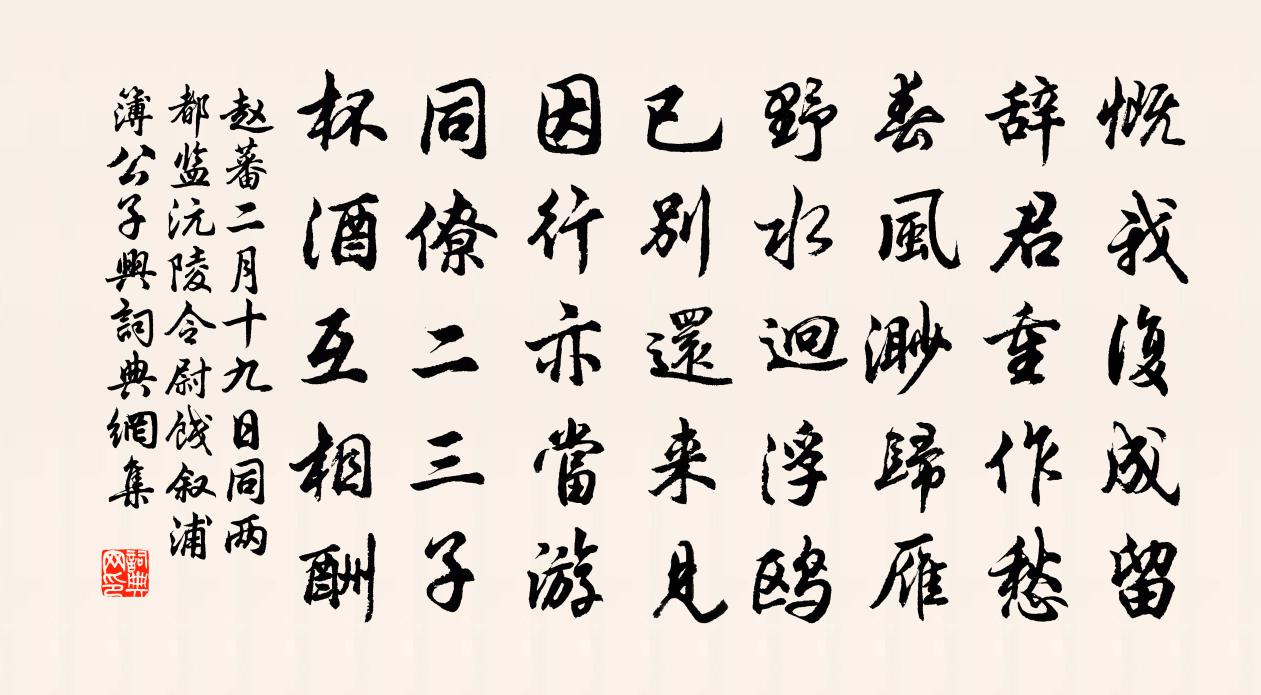 慨我復成留
辞君重作愁
春風渺歸雁
野水迥浮鸥
已別還来見
因行亦當游
同僚二三子
杯酒互相酬
赵蕃二月十九日同两
都监沅陵令尉饯叙浦
簿公子興詞典網集
詞典网印